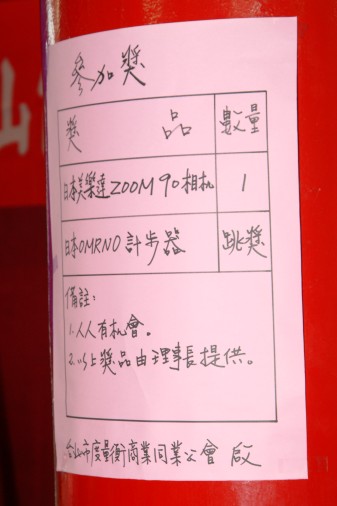 參加獎
獎品 數量
日本美樂達ZOOM90相机 1
日本OMRNO計步器 跳獎
備註:
1.人人有机會。
2.以上獎品由理事長提供。
台山市度量衡商業同業公會 啟
山